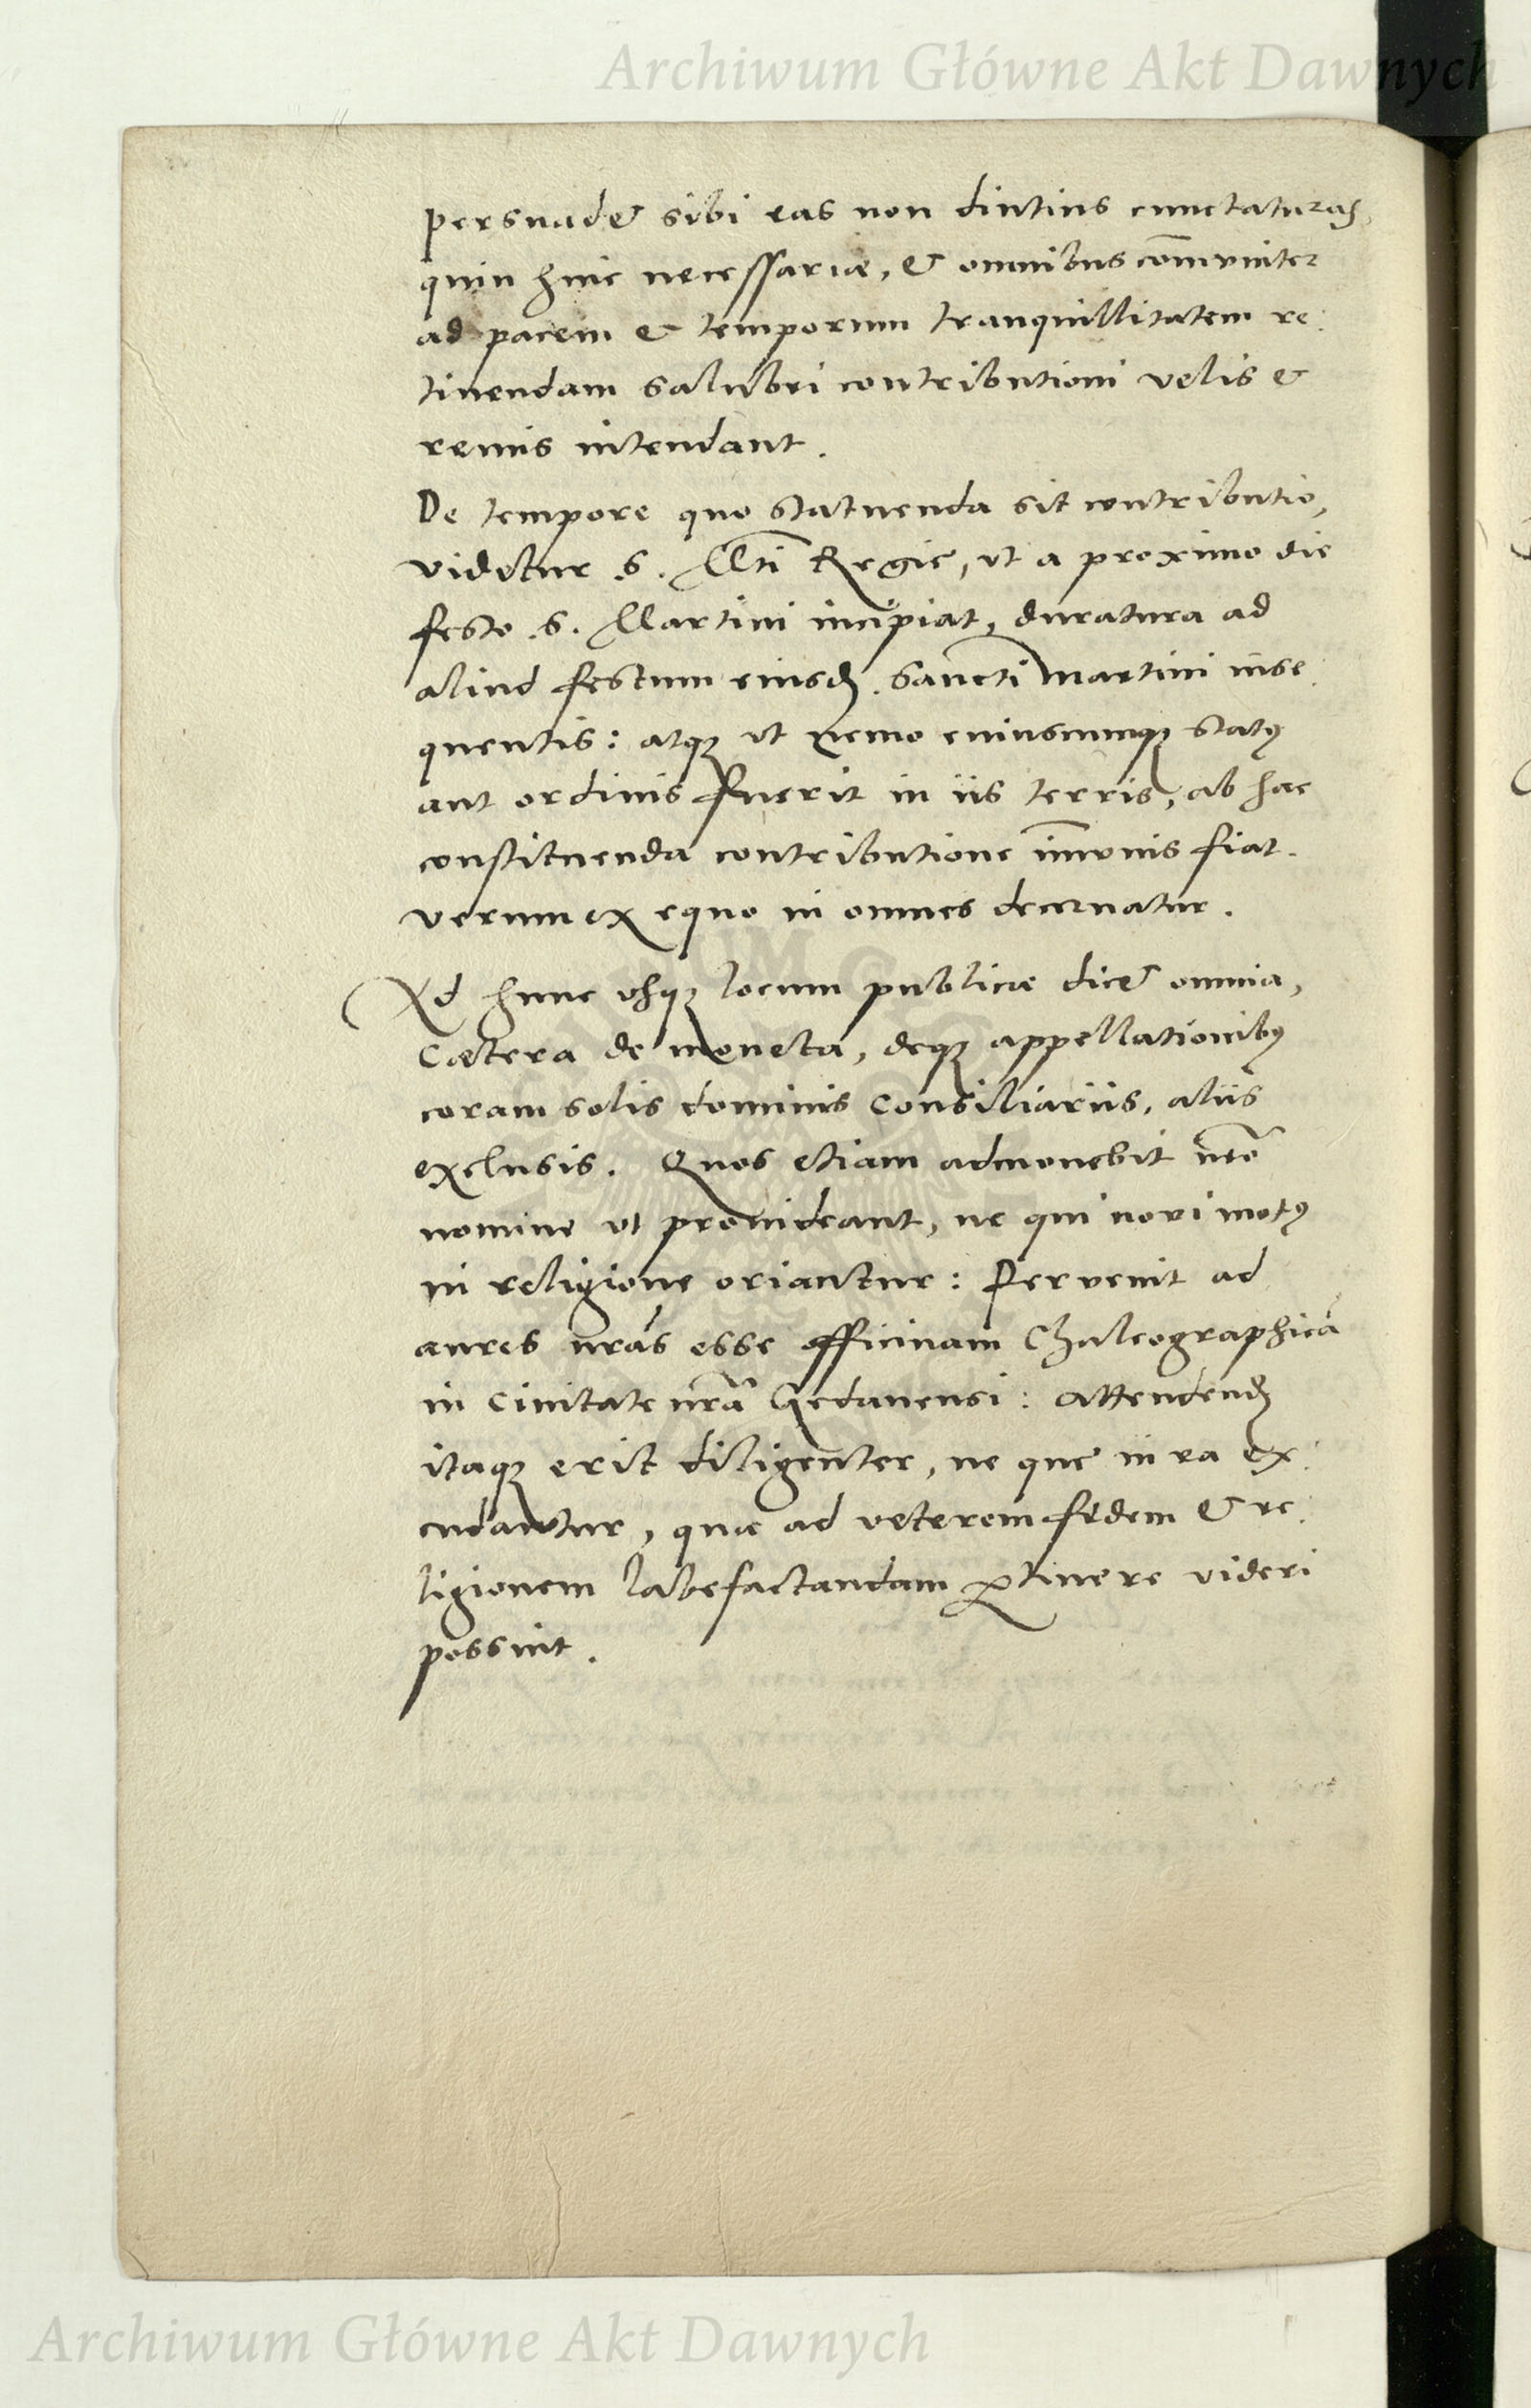 Archiwum Główne Akt Dawnych
persuadet sibi eas non diutius cunctaturas,
quin huic necessariæ, & omnibus com̄uniter
ad pacem & temporum tranquillitatem re:
tinendam salubri contributioni velis &
remis intendant.
De tempore quo statuenda sit contributio,
videtur S. Mti Regie, ut a proximo die
festo S. Martini incipiat, duratura ad
aliud festum eiusd. Sancti Martini inse:
quentis: atq; ut nemo cuiuscunq; statꝰ
aut ordinis fuerit in iis terris, ab hac
constituenda contributione im̄unis fiat.
verum ex equo in omnes decernatur.
Ad hunc usq; locum publice dicet omnia,
Cætera de moneta, deq; appellationibꝰ
coram solis dominis Consiliariis, aliis
exclusis. Quos etiam admonebit nr̄o
nomine ut provideant, ne qui novi motꝰ
in religione oriantur: Pervenit ad
aures nr̄as esse officinam Chalcographicā
in Civitate nr̄a Gedanensi: Attendend
itaq; erit diligenter, ne que in ea ex:
cudantur, quæ ad veterem fidem & re:
ligionem labefactandam ꝑtinere videri
possint.
Archiwum Główne Akt Dawnych